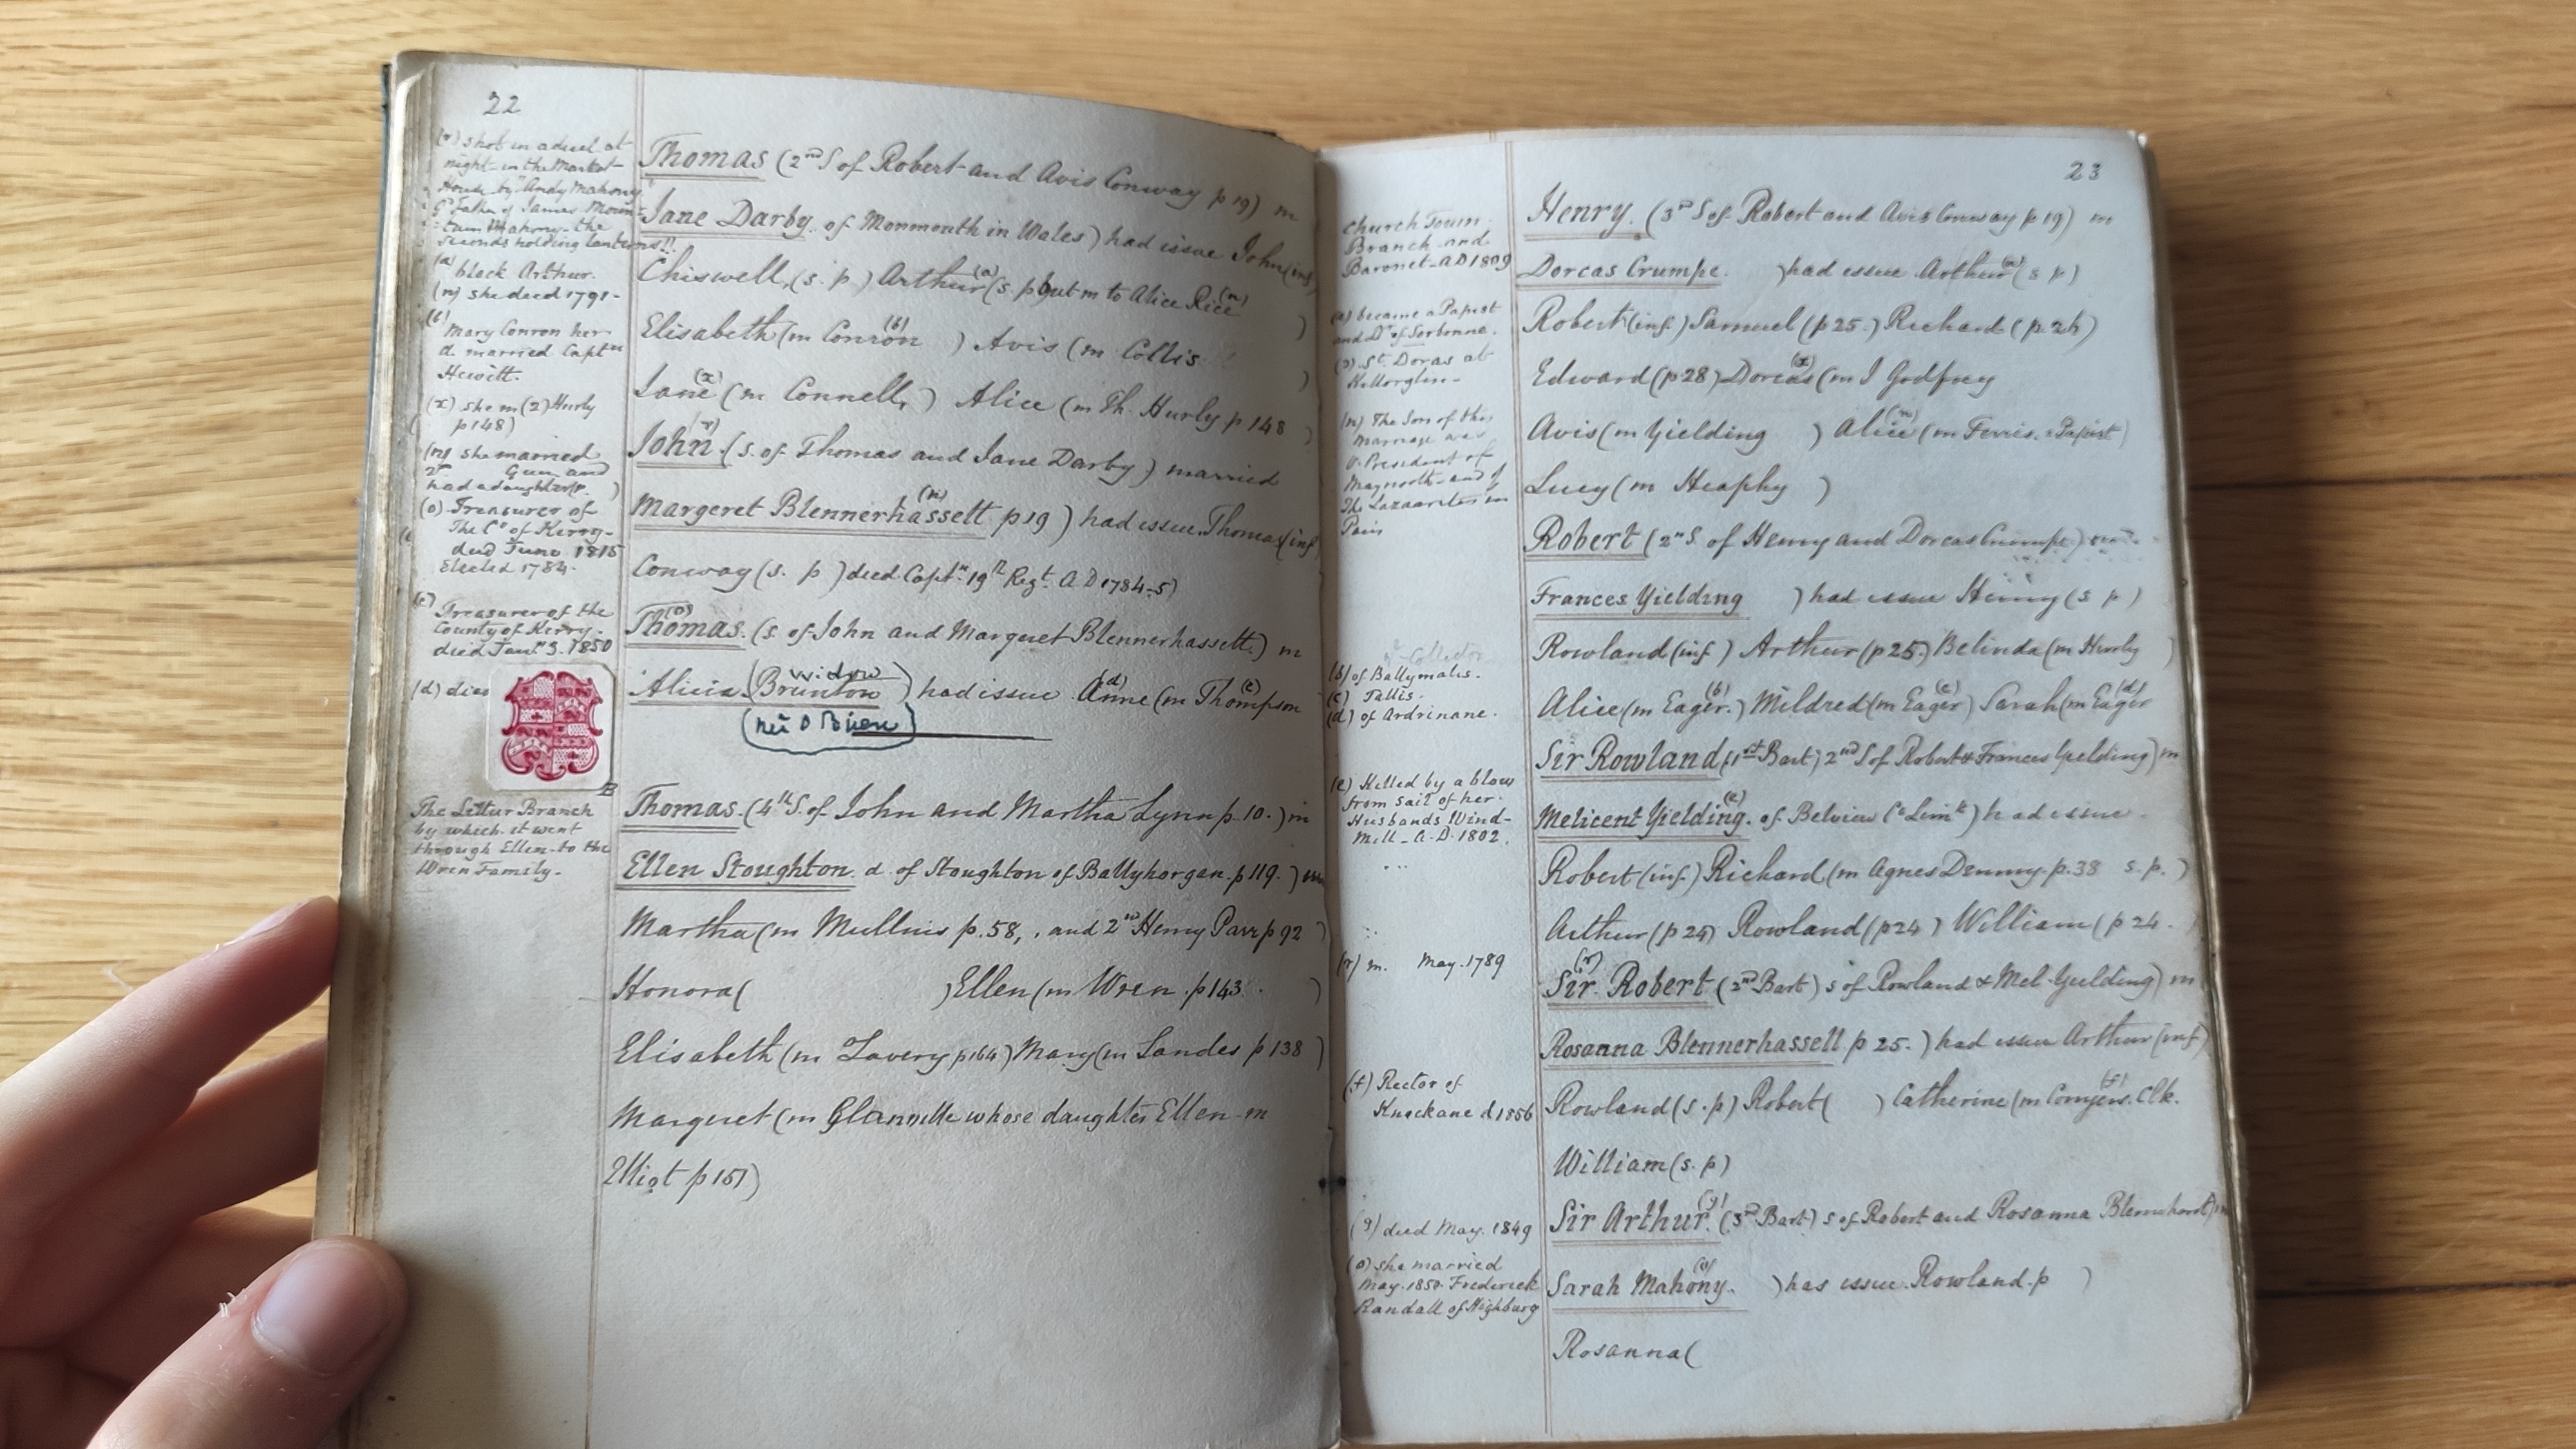 22
(r) shot in a duel at
night in the Market
House by Andy Mahony
Gd father of James Moun-
-tain Mahony - the
seconds holding lanterns!!
(a) black Arthur.
(n) she died 1791-
(b) Mary Conron her
d. married Captn
Hewitt.
(x) she m (2) Hurly
p 148)
(n) she married
2d Gun and
had a daughter
(o) Treasurer of
The Co of Kerry-
died June 1815
Elected 1784.
(c) Treasurer of the
County of Kerry-
died Jany 3. 1850
(d) died
The Littur Branch
by which it went
through Ellen to the
Wren Family-
Thomas (2nd S of Robert and Avis Conway p 19) m
Jane Darby of Monmonth in Wales) had issue John (inf)
Chiswell, (s. p.) Arthur (a) (s. p but m to Alice Rice (n) )
Elisabeth (m Conron (b) ) Avis (m Collis )
Jane (x) (m Connell, ) Alice (m Th. Hurly p 148 )
John (r) (s. of Thomas and Jane Darby) married
Margeret Blennerhassett (n) p 19 ) had issue Thomas (inf)
Conway (s. p ) died Captn 19th Regt. A D 1784-5)
Thomas (o) (s. of John and Margeret Blennerhassett.) m
Alicia (Brunton widow) had issue Anne (d) (m Thompson (c)
(neé O Brien)
Thomas (4th S. of John and Martha Lynn p. 10.) m
Ellen Stoughton d. of Stoughton of Ballyhorgan. p 119. ) m
Martha (m Mullins p. 58, , and 2nd Henry Parr p 92 )
Honora ( ) Ellen (m Wren. p 143 )
Elisabeth (m Lavery p 164) Mary (m Sandes p 138 )
Margeret (m Glanville whose daughter Ellen m
Elliot p 151)
23
Church Town
Branch and
Baronet A D 1809
(a) became a Papist
and Dr of Sorbonne.
(x) St. Doras at
Killorglin-
(n) The Son of this
Marriage was
V. President of
Maynooth and of
The Lazaarites in
Paris
Collector
(b) of Ballymalis.
(c) Tallis.
(d) of Ardrinane.
(e) Killed by a blow
from sail of her
Husbands Wind-
Mill - A. D. 1802.
(r) m. May. 1789
(f) Rector of
Knockane d 1856
(g) died May. 1849
(o) she married
May. 1850 Frederick
Randall of Highburg
Henry. (3rd S of Robert and Avis Conway p 19) m
Dorcas Crumpe. ) had issue Arthur (a) (s p)
Robert (inf.) Samuel (p 25.) Richard (p. 26)
Edward (p 28) Dorcas (x) (m J Godfrey
Avis (m Yielding ) Alice (n) (m Ferris. a Papist)
Lucy (m Heaphy )
Robert (2nd S. of Henry and Dorcas Crumpe.) m
Frances Yielding ) had issue Henry (s p)
Rowland (inf.) Arthur (p 25.) Belinda (m Hurly )
Alice (m Eager. (b) ) Mildred (m Eager (c) ) Sarah (m Eager (d)
Sir Rowland (1st Bart; 2nd S of Robert & Frances Yielding) m
Melicent Yielding. (e) of Belview (Co Limk) had issue
Robert (inf.) Richard (m Agnes Denny. p. 38 s. p. )
Arthur (p 24) Rowland (p 24 ) William (p 24.
Sir Robert (r) (2nd Bart) s of Rowland & Mel. Yielding) m
Rosanna Blennerhassett p 25. ) had issue Arthur (inf)
Rowland (s. p) Robert ( ) Catherine (m Comyers. (f) Clk.
William (s. p)
Sir Arthur (g) (3rd Bart) s of Robert and Rosanna Blennerhassett) m
Sarah Mahony. (o) ) has issue. Rowland. p )
Rosanna (